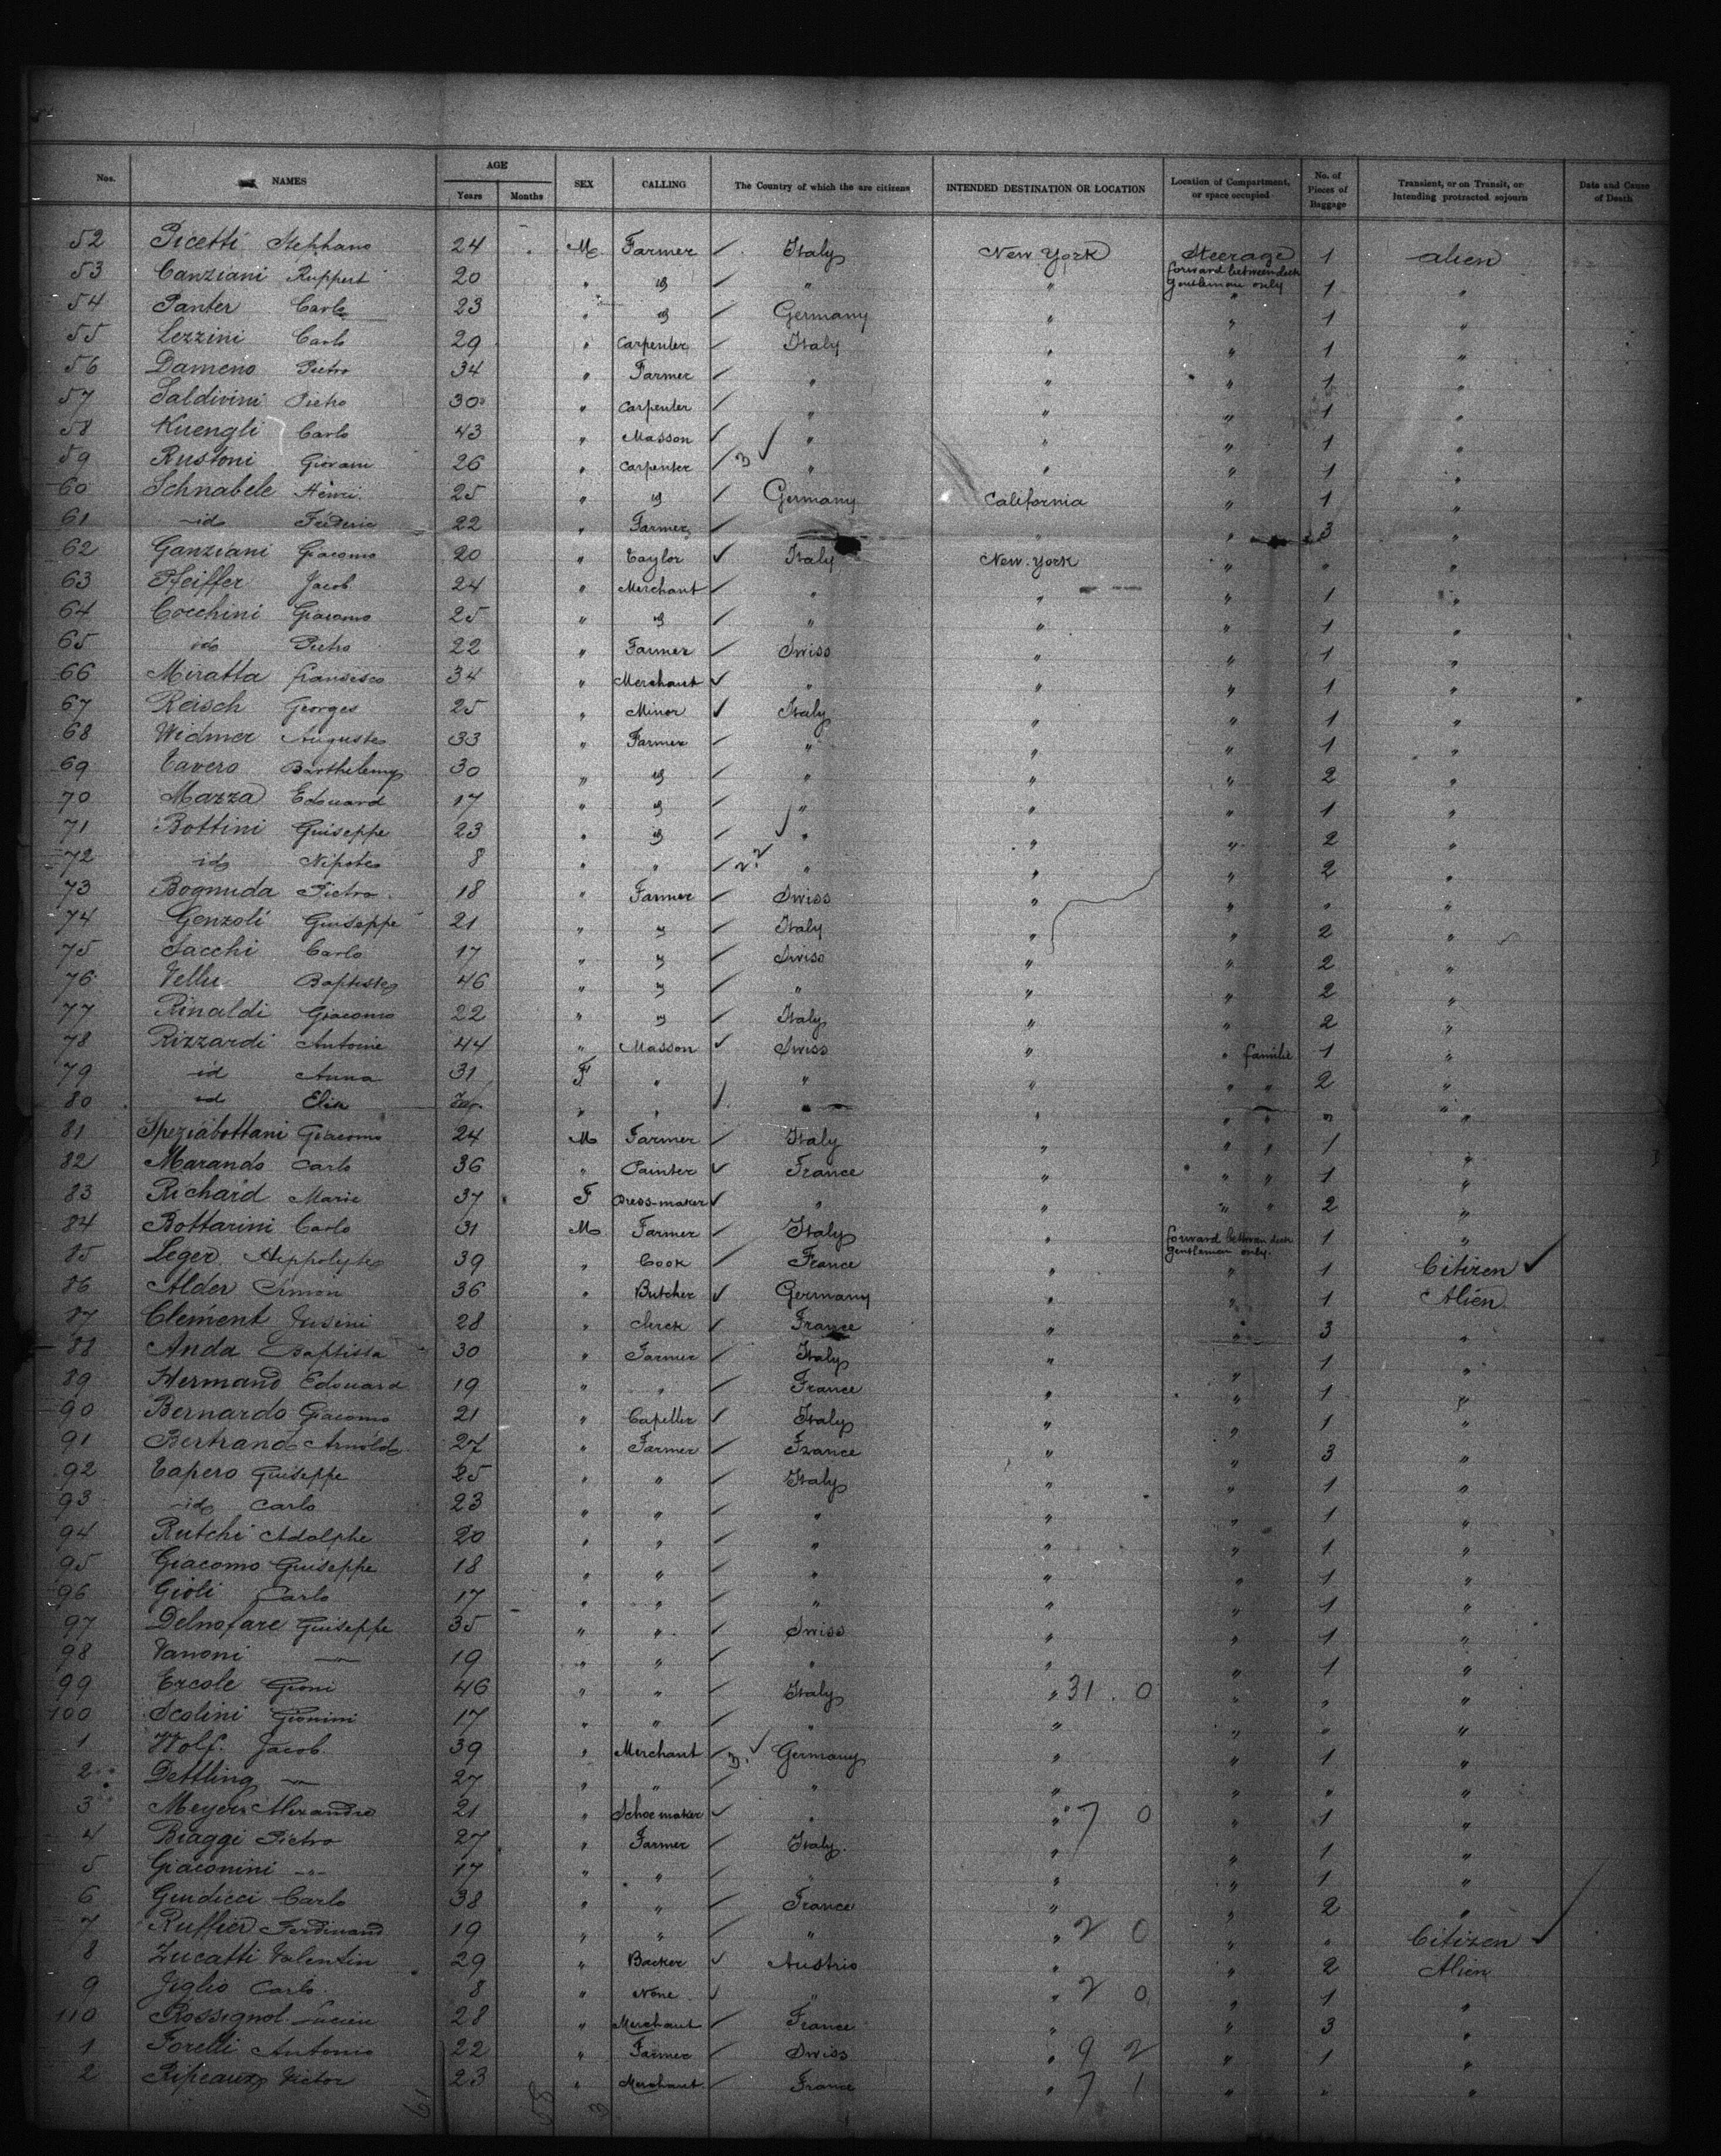 Nos. NAMES AGE Years Months SEX CALLING The Country of which the are citizens INTENDED DESTINATION OR LOCATION Location of Compartment, or space occupied No. of Pieces of Baggage Transient, or on Transit, or Intending protracted sojourn Date and Cause of Death
52 Picetti Stephano 24 M Farmer Italy New York Steerage 1 alien
forward between deck
53 Canziani Ruppert 20 " id " " Gentleman only 1 "
54 Panter Carlo 23 " id Germany " " 1 "
55 Lezzini Carlo 29 " Carpenter Italy " " 1 "
56 Dameno Pietro 34 " Farmer " " " 1 "
57 Saldivini Pietro 30 " Carpenter " " " 1 "
58 Kuengli Carlo 43 " Masson " " " 1 "
59 Rustoni Giovani 26 " Carpenter 3 " " " 1 "
60 Schnabele Henri 25 " id Germany California " 1 "
61 id Frederic 22 " Farmer " " 3 "
62 Ganziani Giacomo 20 " Taylor Italy New York " " "
63 Pfeiffer Jacob 24 " Merchant " " " 1 "
64 Cocchini Giacomo 25 " id " " " 1 "
65 id Pietro 22 " Farmer Swiss " " 1 "
66 Miratta fransisco 34 " Merchant " " " 1 "
67 Reisch Georges 25 " Minor Italy " " 1 "
68 Widmer Auguste 33 " Farmer " " " 1 "
69 Tavero Barthelemy 30 " id " " " 2 "
70 Mazza Edouard 17 " id " " " 1 "
71 Bottini Guiseppe 23 " id " " " 2 "
72 id Nipote 8 " " 22 " " " 2 "
73 Bognuda Pietro 18 " Farmer Swiss " " " "
74 Genzoli Guiseppe 21 " " Italy " " 2 "
75 Sacchi Carlo 17 " " Swiss " " 2 "
76 Vellu Baptiste 46 " " " " " 2 "
77 Rinaldi Giacomo 22 " " Italy " " 2 "
78 Rizzardi Antoine 44 " Masson Swiss " " familie 1 "
79 id Anna 31 F " " " " " 2 "
80 id Elisa " " " " " " " "
81 Speziabottani Giacomo 24 M Farmer Italy " " " 1 "
82 Marando Carlo 36 " Painter France " " " 1 "
83 Richard Marie 37 F Dress-maker " " " " 2 "
84 Bottarini Carlo 31 M Farmer Italy " forward between deck 1 "
Gentleman only.
85 Leger Hippolyte 39 " Cook France " " 1 Citizen
86 Alder Simon 36 " Butcher Germany " " 1 Alien
87 Clement 28 " clerck France " " 3 "
88 Anda Baptista 30 " Farmer Italy " " 1 "
89 Hermand Edouard 19 " " France " " 1 "
90 Bernardo Giacomo 21 " Capeller Italy " " 1 "
91 Bertrand Arnold 27 " Farmer France " " 3 "
92 Tapero Guiseppe 25 " " Italy " " 1 "
93 id Carlo 23 " " " " " 1 "
94 Rutchi Adolphe 20 " " " " " 1 "
95 Giacomo Guiseppe 18 " " " " " 1 "
96 Gioli Carlo 17 " " " " " 1 "
97 Delnofare Guiseppe 35 " " Swiss " " 1 "
98 Vanoni — 19 " " " " " 1 "
99 Ercole Gioni 46 " " Italy " 31. 0 " " "
100 Scolini Gionini 17 " " " " " " "
1 Wolf Jacob 39 " Merchant 3. Germany " " 1 "
2 Dettling — 27 " " " " " " "
3 Meyer Alexandre 21 " Schoe maker " " 7 0 " 1 "
4 Biaggi Pietro 27 " Farmer Italy " " 1 "
5 Giaconini — 17 " " " " " 1 "
6 Giudicci Carlo 38 " " France " " 2 "
7 Ruffier Ferdinand 19 " " " " 2 0 " " Citizen
8 Zucatti Valentin 29 " Backer Austria " " 2 Alien
9 Carlo 8 " None " " 2 0 " 1 "
110 Rossignol Lucien 28 " Merchant France " " 3 "
1 Forelli Antonio 22 " Farmer Swiss " 9 2 " 1 "
2 Ripeaux Victor 23 " Merchant France " 7 1 " " "
61 58 3